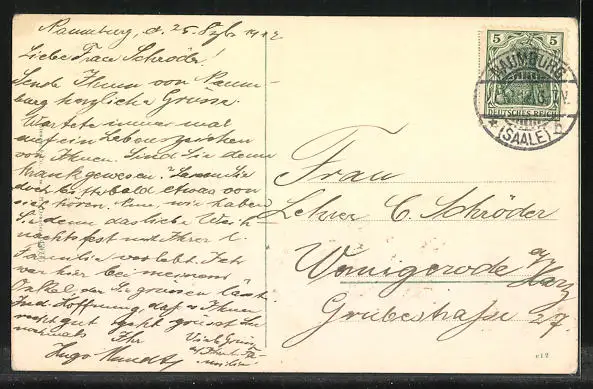 Naumburg, d. 25. Dzb. 1912
Liebe Frau Schröder!
Sende Ihnen von Naum-
burg herzliche Grüsse.
Wartete immer mal
auf ein Lebenszeichen
von Ihnen. Sind Sie denn
krank gewesen? Lassen Sie
doch bitte bald etwas von
sich hören. Nun, wie haben
Sie denn das liebe Weih
nachtsfest mit Ihrer l.
Familie verlebt. Ich
war hier bei meinem
Onkel der Sie grüssen lässt.
Hoffnung, dass es Ihnen
recht gut geht grüsst Sie
nochmals Ihr
Hugo
Viele Grüsse
5
5
DEUTSCHES REICH
NAUMBURG
(SAALE)
Frau
Lehrer C. Schröder
Wernigerode a/Harz
Grubestraße 27.